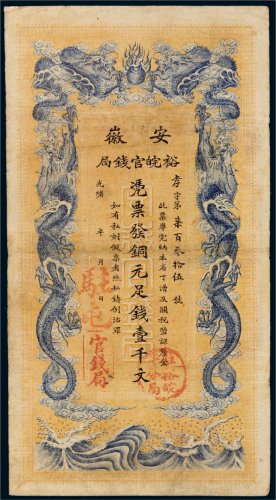 安徽
裕皖官錢局
孝字第柒百叁拾伍號
此票準完納本省丁漕及關稅鹽課釐金
憑票發銅元足錢壹千文
如有私刻假票者照私鑄例治罪
光緒 年 月 日
官錢局